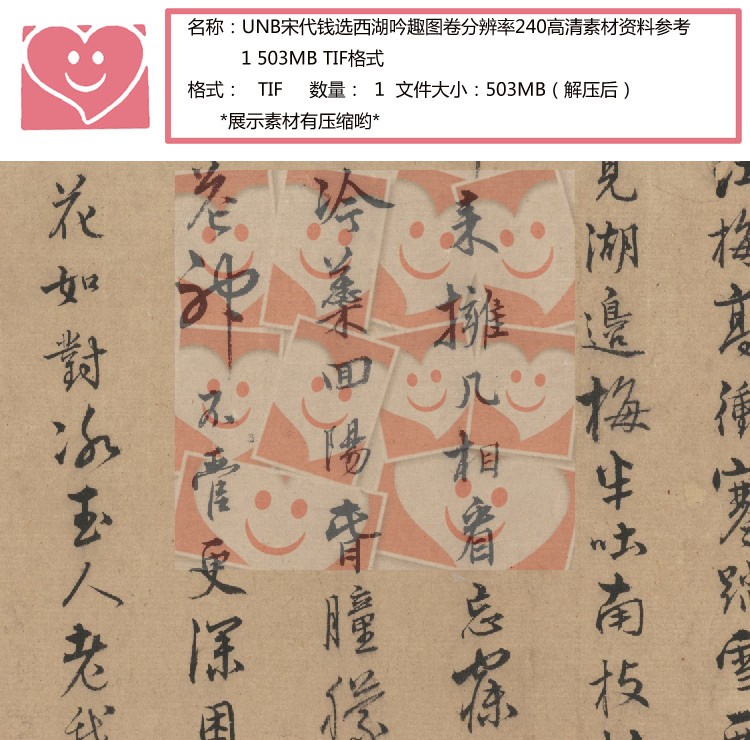 名称：UNB宋代钱选西湖吟趣图卷分辨率240高清素材资料参考
1 503MB TIF格式
格式： TIF 数量： 1 文件大小：503MB（解压后）
*展示素材有压缩哟*
江梅衝寒踏雪
見湖邊梅半吐南枝
來擁几相看忘寐
冷回陽朣朦
神不管更深
花如對冰玉人老我